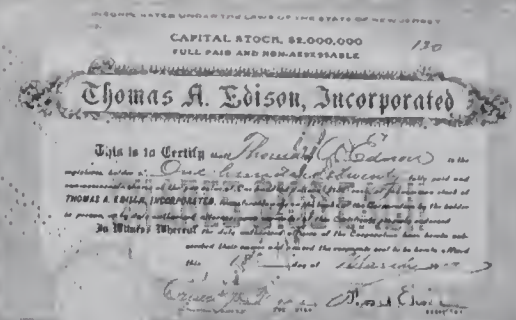 INCORPORATED UNDER THE LAWS OF THE STATE OF NEW JERSEY
CAPITAL STOCK, $2,000,000
130
FULL PAID AND NON-ASSESSABLE
Thomas A. Edison, Incorporated
This is to Certify that Thomas A. Edison is the
registered holder of One hundred and twenty fully paid and
non-assessable shares of the par value of One hundred dollars each of the capital stock of
THOMAS A. EDISON, INCORPORATED, transferable only on the books of the Corporation by the holder
in person or by duly authorized attorney upon surrender of this Certificate properly endorsed
In Witness Whereof the duly authorized officers of the Corporation have hereto sub-
scribed their names and caused the corporate seal to be hereto affixed
this day of